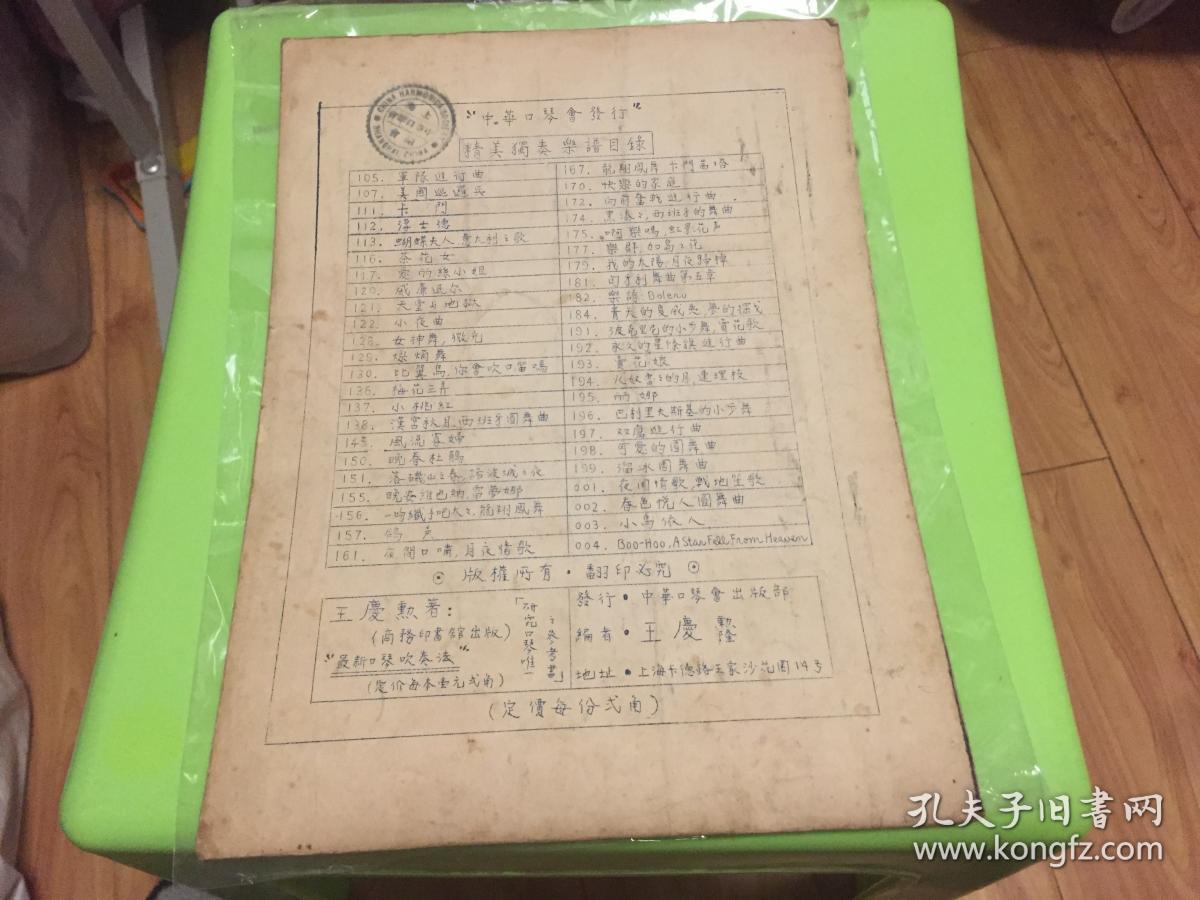 CHINA HARMONICA SOCIETY
上海
中華口琴會
"中華口琴會發行"
精美獨奏樂譜目錄
105. 軍隊進行曲
107. 美國巡邏兵
111. 卡門
112. 浮士德
113. 蝴蝶夫人,意大利之歌
116. 茶花女
117. 愛的絲小姐
120. 威廉退尔
121. 天堂與地獄
122. 小夜曲
128. 女神舞,微光
129. 燉焫舞
130. 比翼鳥,你會吹口笛嗎
136. 梅花三弄
137. 小桃紅
138. 漢宮秋月,西班牙圓舞曲
145. 風流寡婦
150. 晚春杜鵑
151. 洛磯山之春,諾波城之夜
155. 晚安維也納,雷夢娜
156. 一吻纖手吧太太,龍翔鳳舞
157. 鴿
161. 夜間口嘯,月夜情歌
167. 龍翔鳳舞 卡門
170. 快樂的家庭
172. 向前奮戰進行曲
174. 西班牙的舞曲
175. 啊樂嗚,紅影花戶
177. 樂群,加島之花
179. 我的太陽,月夜歸棹
181. 匈牙利舞曲第五章
182. 樂譜Boleru
184. 青
191. 的小步舞,賣花歌
192. 永久的星條旗進行曲
193. 賣花娘
194. 的月,連理枝
195. 的娜
196. 巴利里夫斯基的小步舞
197. 双鷹進行曲
198. 可愛的圓舞曲
199. 溜冰圓舞曲
001. 夜間情歌,戰地笙歌
002. 春色悅人圓舞曲
003. 小鳥依人
004. Boo-Hoo, A Star Fell From Heaven
⊙ 版權所有·翻印必究 ⊙
王慶勲著:
(商務印書館出版)
"最新口琴吹奏法"
(定价每本壹元弍角)
「研究口琴唯一
之參考書」
發行·中華口琴會出版部
編者·王慶勲隆
地址·上海卡德路王家沙花園14号
(定價每份弍角)
孔夫子旧書网
www.kongfz.com